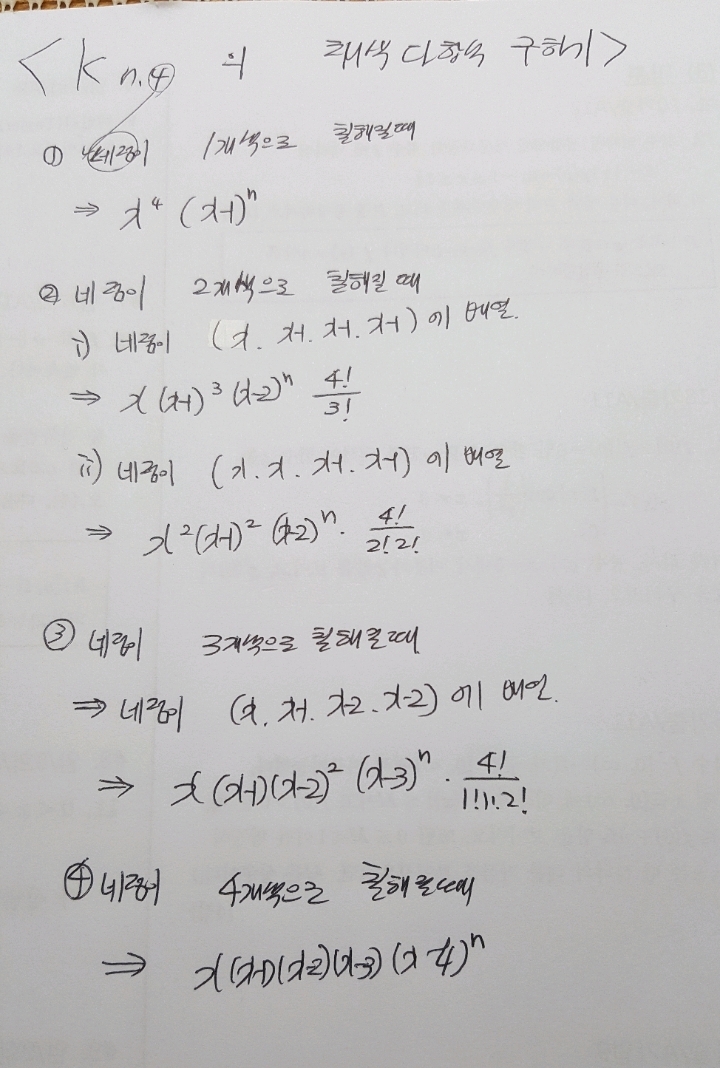 <K n.4 의 채색다항식 구하기>
① 네점이 1개색으로 칠해질때
⇒ x⁴ (x-1)ⁿ
② 네점이 2개색으로 칠해질 때
i) 네점이 (x. x-1. x-1. x-1) 에 배열.
⇒ x(x-1)³(x-2)ⁿ 4!/3!
ii) 네점이 (x. x. x-1. x-1) 에 배열
⇒ x²(x-1)²(x-2)ⁿ. 4!/2!2!
③ 네점이 3개색으로 칠해질때
⇒ 네점이 (x. x-1. x-2. x-2) 에 배열.
⇒ x(x-1)(x-2)²(x-3)ⁿ. 4!/1!1!2!
④ 네점이 4개색으로 칠해질때
⇒ x(x-1)(x-2)(x-3)(x-4)ⁿ